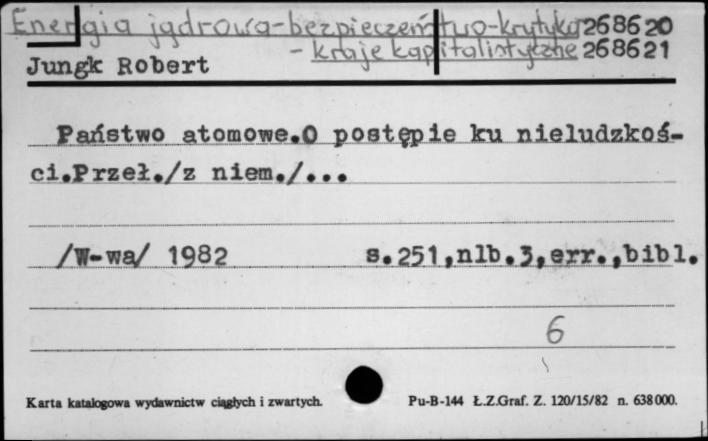 Energia jądrowa-bezpieczeństwo-krytyka 268620
- kraje kapitalistyczne 268621
Jungk Robert
Państwo atomowe.O postępie ku nieludzkoś-
ci.Przeł./z niem./...
/W-wa/ 1982 s.251,nlb.3,err.,bibl.
6
Karta katalogowa wydawnictw ciągłych i zwartych. Pu-B-144 Ł.Z.Graf. Z. 120/15/82 n. 638000.